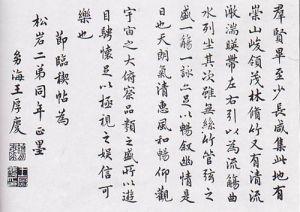 羣賢畢至少長咸集此地有
崇山峻領茂林脩竹又有清流
激湍暎帶左右引以為流觴曲
水列坐其次雖無絲竹管弦之
盛一觴一詠亦足以暢叙幽情是
日也天朗氣清惠風和暢仰觀
宇宙之大俯察品類之盛所以遊
目騁懷足以極視之娛信可
樂也
節臨禊帖為
松岩二弟同年正墨
海王厚慶